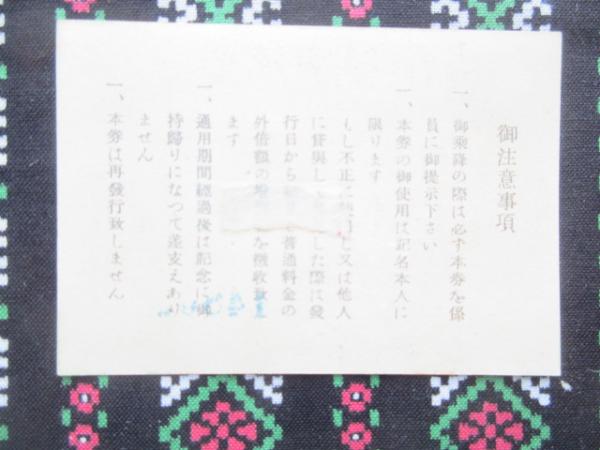 御注意事項
一、御乗降の際は必ず本券を係
員に御提示下さい
一、本券の御使用は記名本人に
限ります
もし不正に使用し又は他人
に貸與し した際は發
行日から 普通料金の
外倍額の を徴收致
ます
一、通用期間經過後は記念に御
持歸りになつて差支えあり
ません
一、本券は再發行致しません